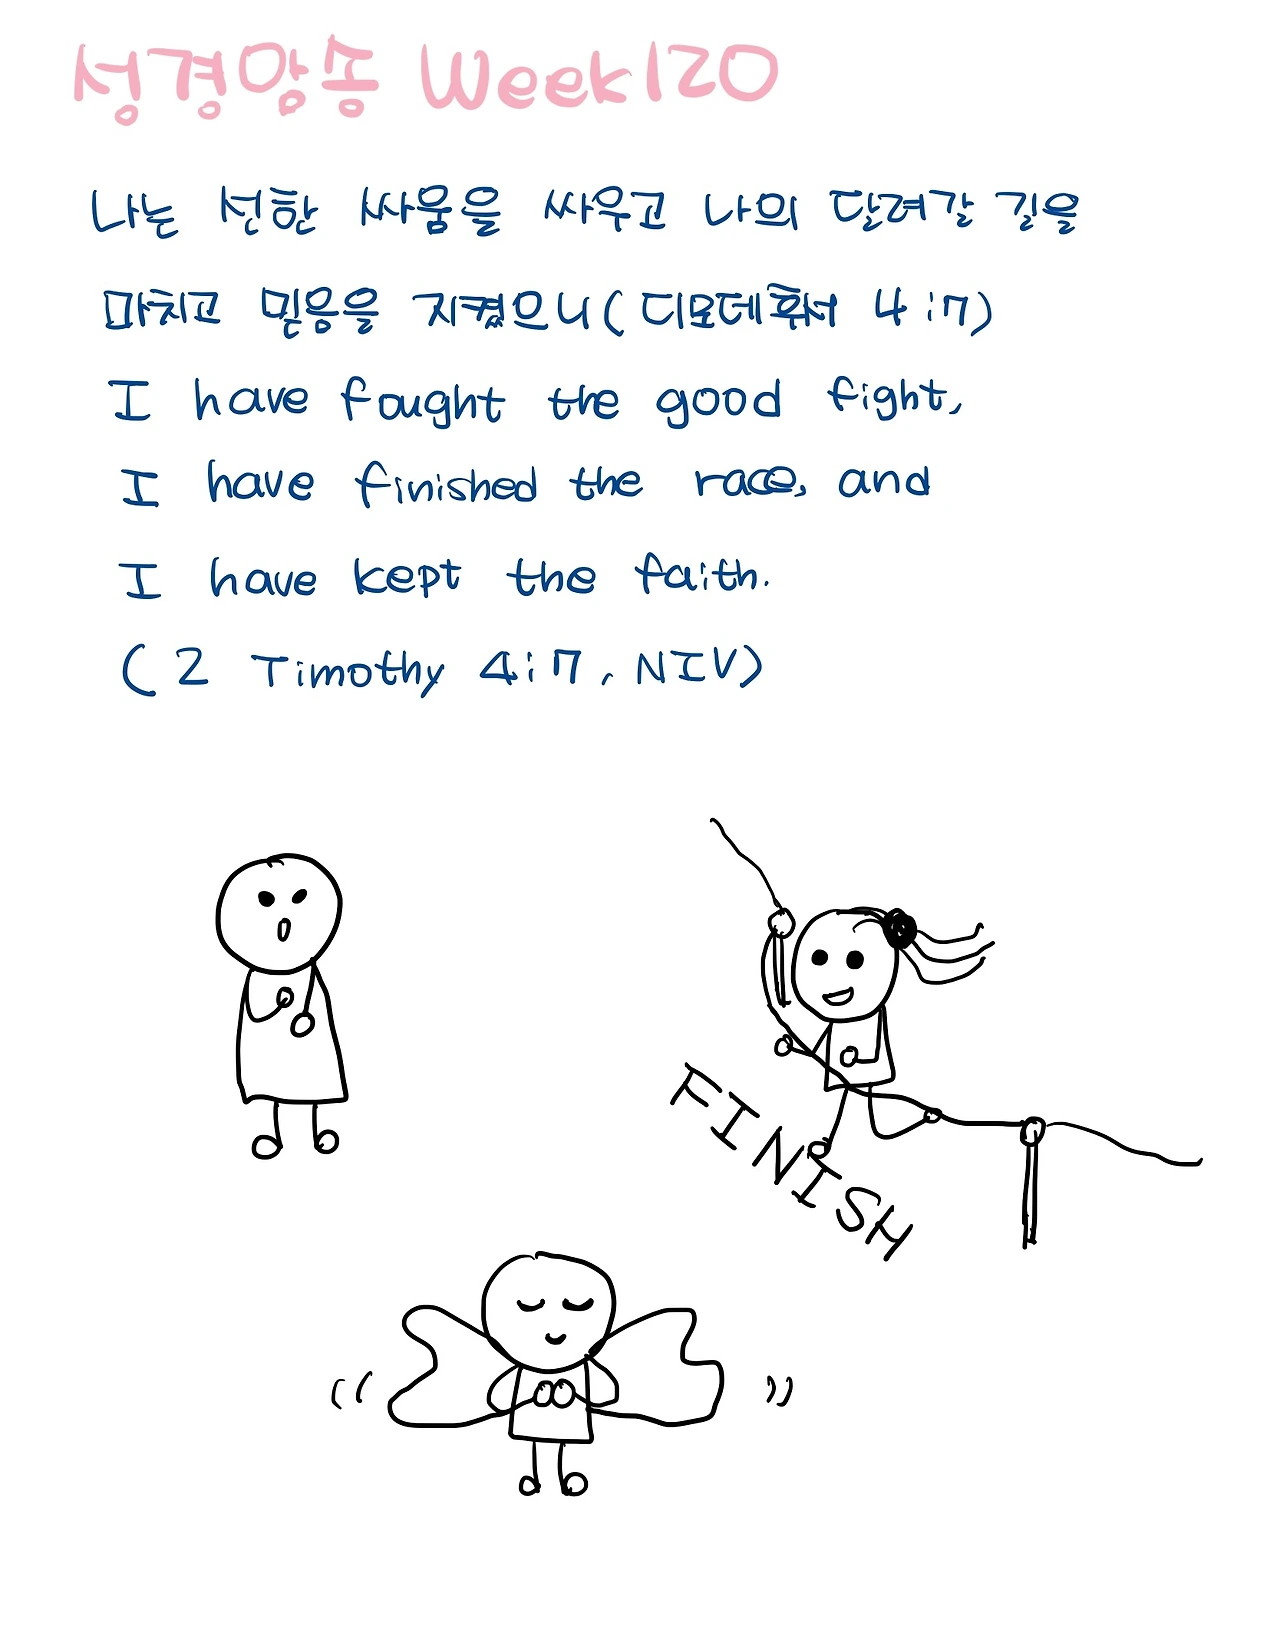 성경암송 Week120
나는 선한 싸움을 싸우고 나의 달려갈 길을
마치고 믿음을 지켰으니(디모데후서 4:7)
I have fought the good fight,
I have finished the race, and
I have kept the faith.
(2 Timothy 4:7, NIV)
FINISH